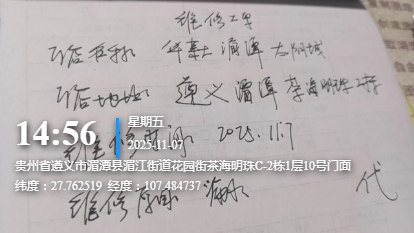 维修工单
门店名称 华莱士 湄潭 太阳城
门店地址 遵义 湄潭 茶海明珠
14:56
星期五
2025-11-07
维修时间 2025.11.7
贵州省遵义市湄潭县湄江街道花园街茶海明珠C-2栋1层10号门面
纬度：27.762519 经度：107.484737
维修
代